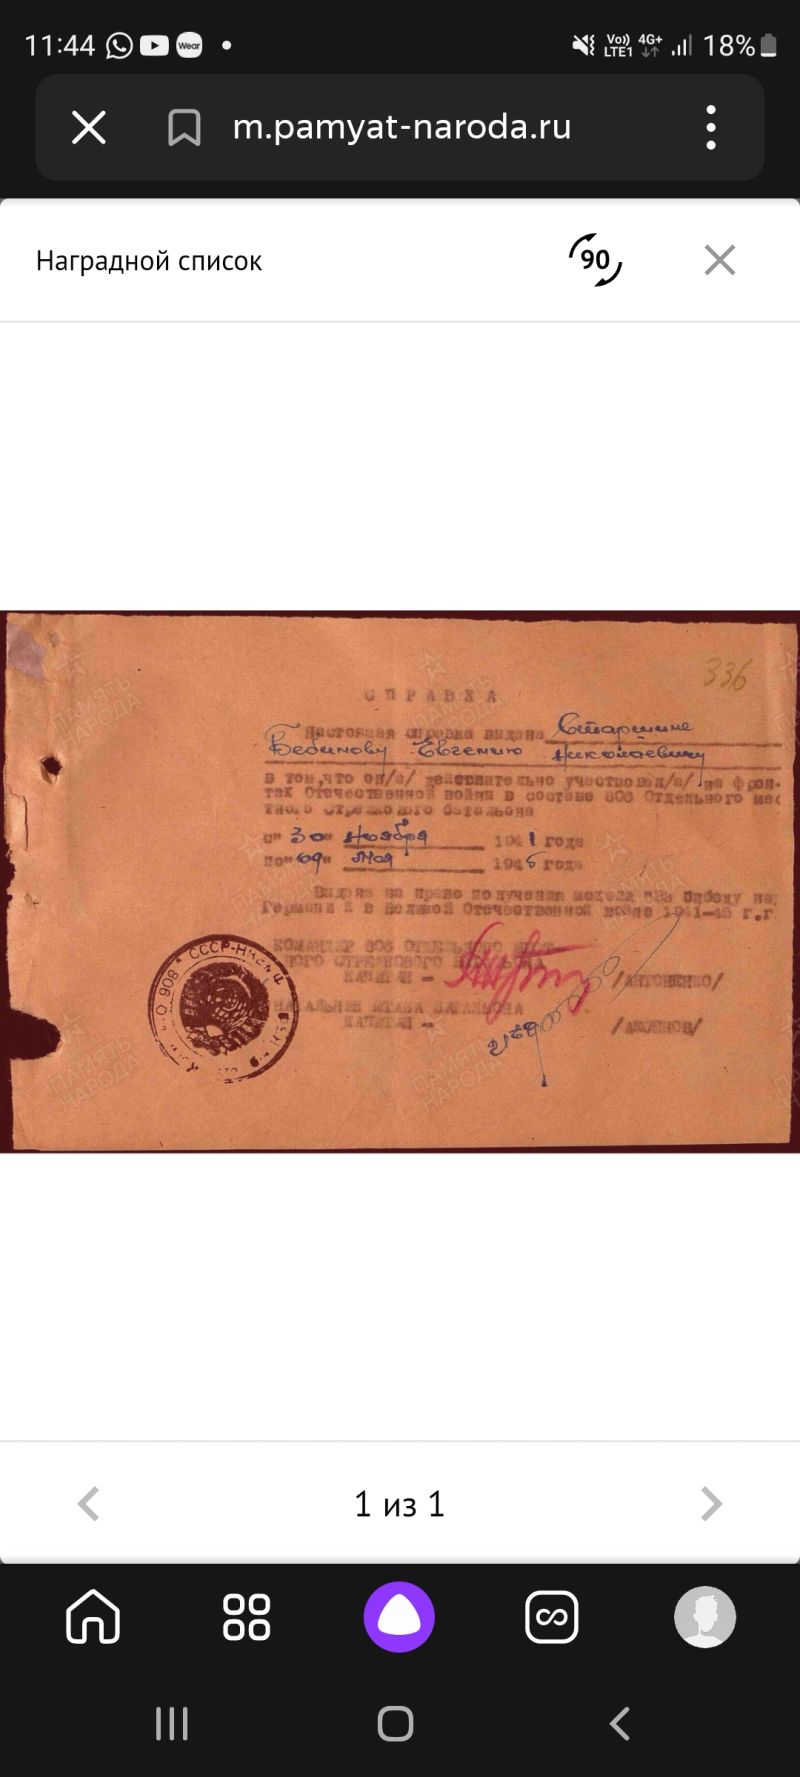 11:44 Wear Vo)) LTE1 4G+ 18%
m.pamyat-naroda.ru
Наградной список
90
336
СПРАВКА
Настоящая справка выдана Старшине
Евгению Николаевичу
в том, что он/а/ действительно участвовал/а/ на фрон-
тах Отечественной войны в составе 808 Отдельного мес
тного стрелкового батальона
с" 30 " Ноября 1941 года
по" 09 " Мая 1945 года
Выдана на право получения медали "За победу на
Германией в Великой Отечественной войне 1941-45 г.г
КОМАНДИР 808 ОТДЕЛЬНОГО МЕСТ-
НОГО СТРЕЛКОВОГО БАТАЛЬОНА
КАПИТАН - /АНТОНЕНКО/
НАЧАЛЬНИК ШТАБА БАТАЛЬОНА
КАПИТАН - /АКСЕНОВ/
СССР-Н
ПАМЯТЬ НАРОДА
ПАМЯТЬ НАРОДА
ПАМЯТЬ НАРОДА
ПАМЯТЬ НАРОДА
1 из 1